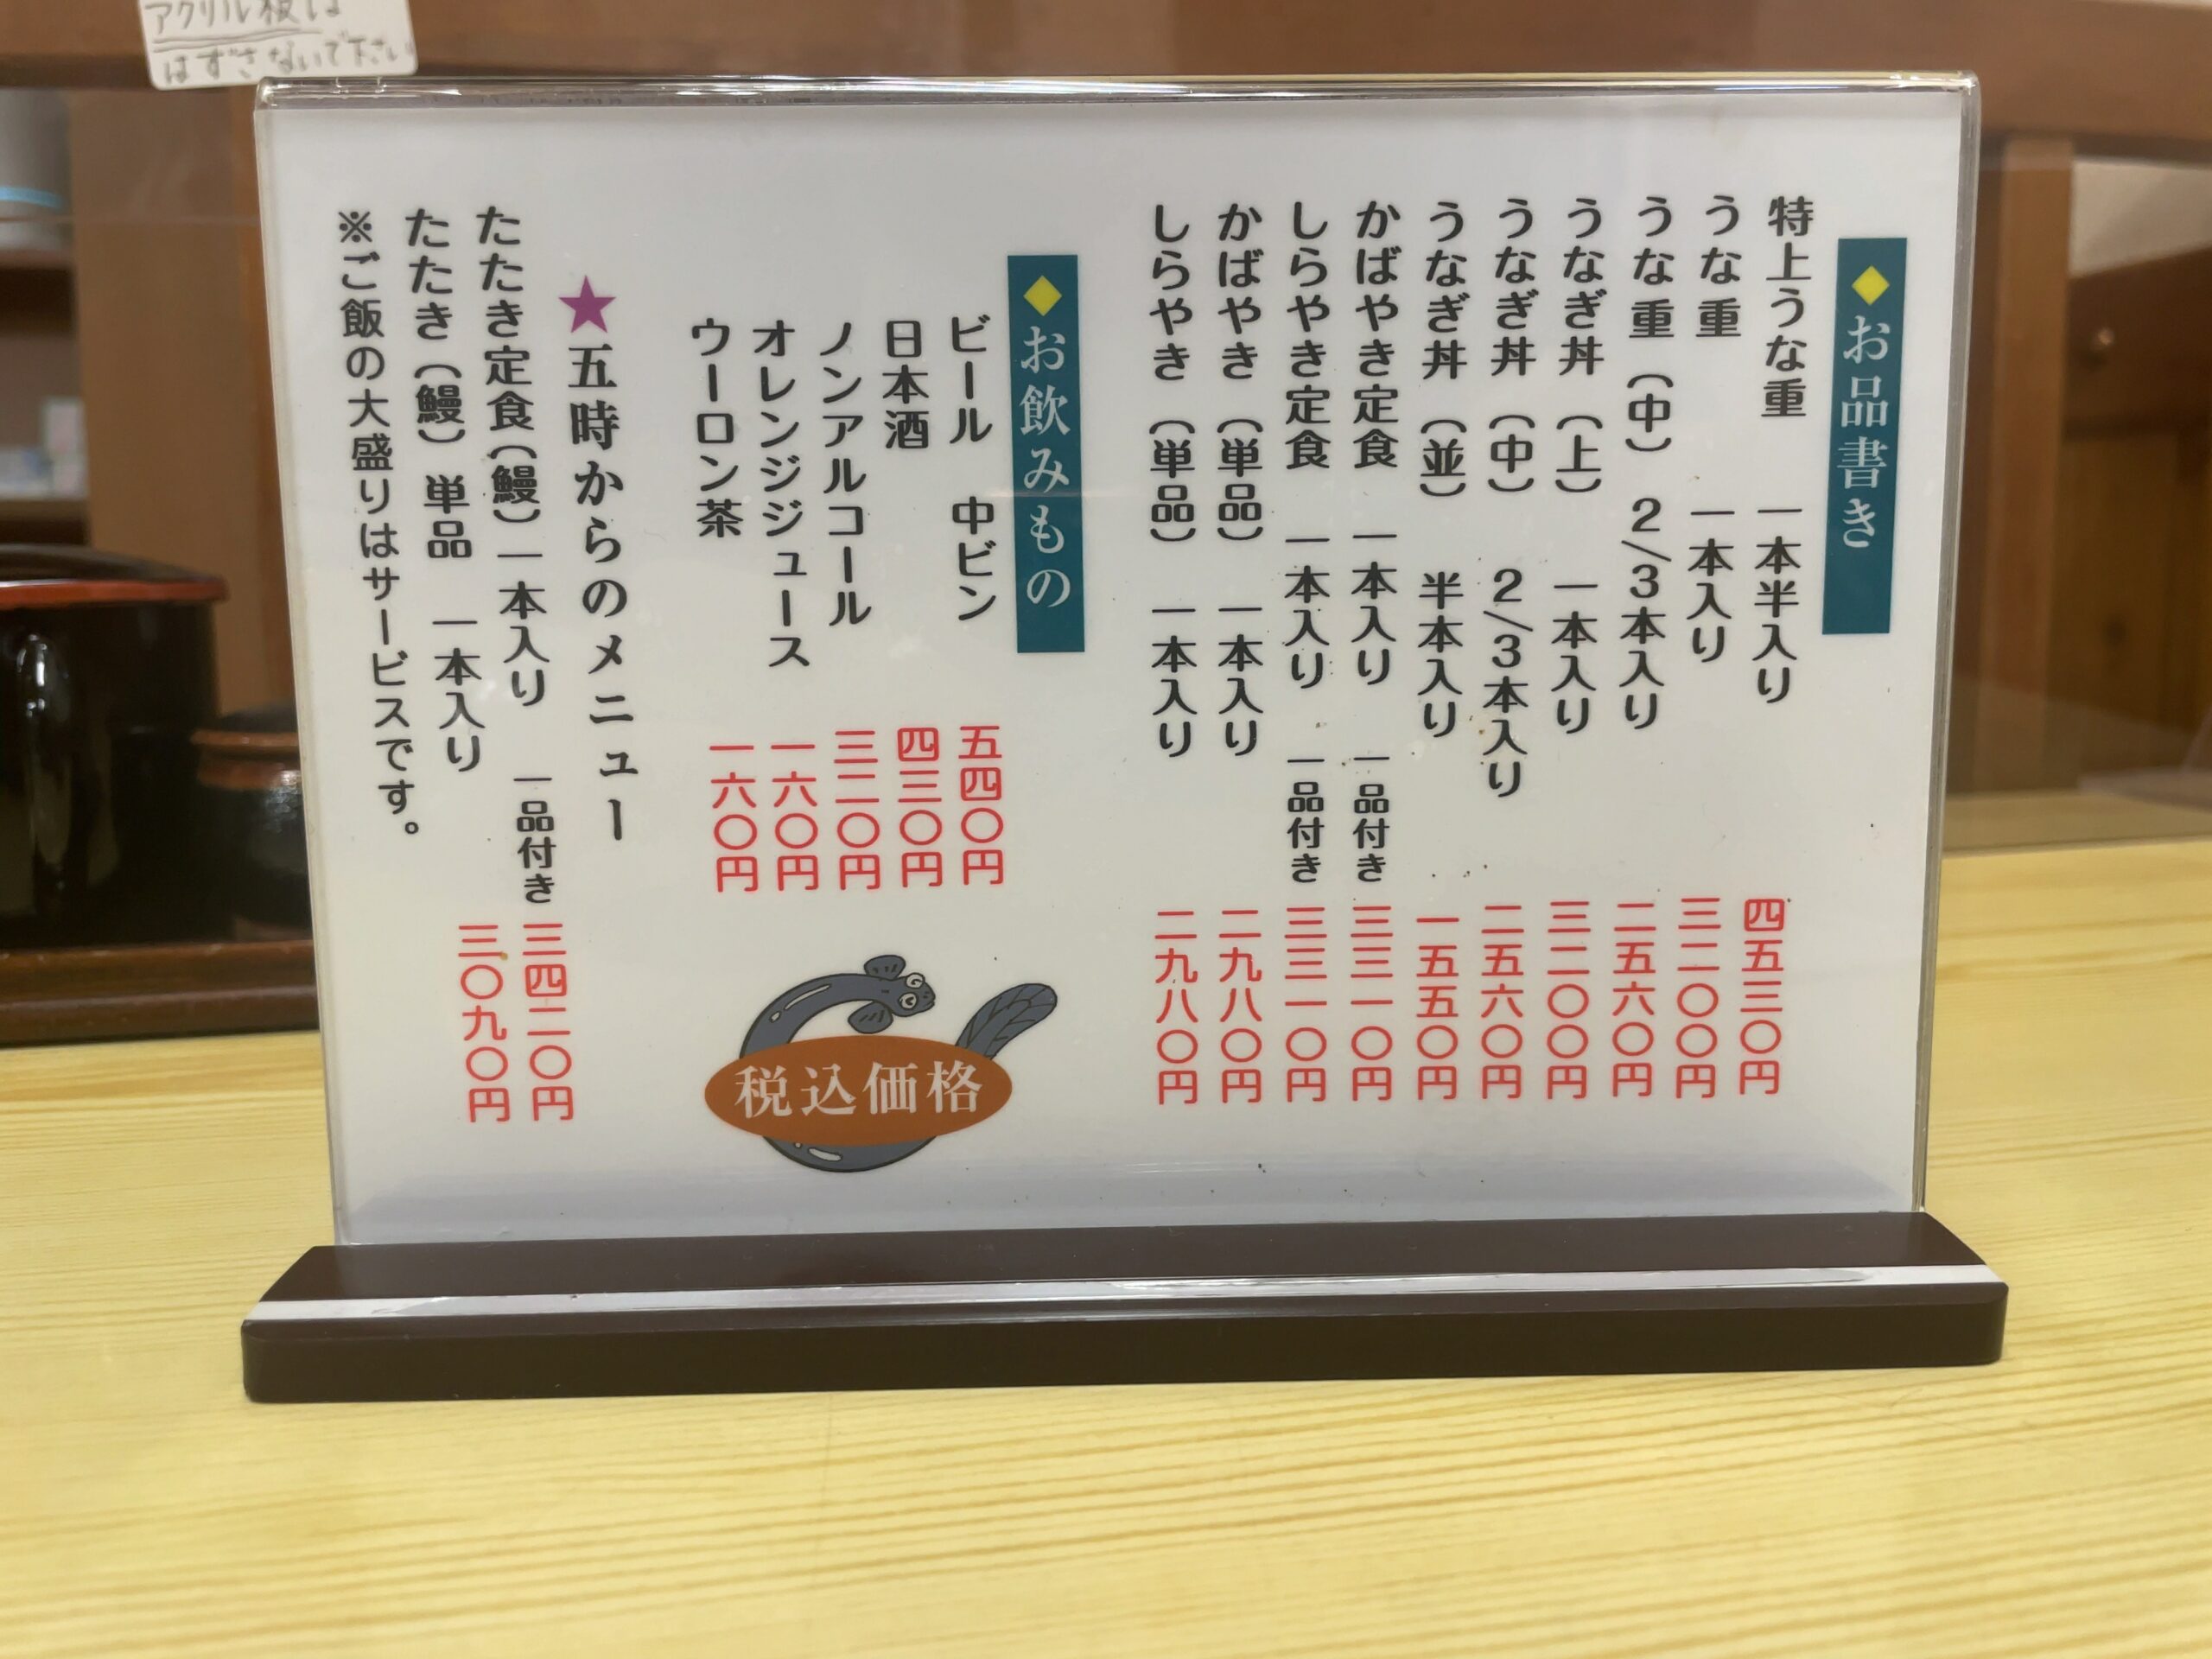 アクリル板は
はずさないで下さい
◆お品書き
特上うな重 一本半入り 四五三〇円
うな重 一本入り 三二〇〇円
うな重（中） 2/3本入り 二五六〇円
うなぎ丼（上） 一本入り 三二〇〇円
うなぎ丼（中） 2/3本入り 二五六〇円
うなぎ丼（並） 半本入り 一五五〇円
かばやき定食 一本入り 一品付き 三三一〇円
しらやき定食 一本入り 一品付き 三三一〇円
かばやき（単品） 一本入り 二九八〇円
しらやき（単品） 一本入り 二九八〇円
◆お飲みもの
ビール 中ビン 五四〇円
日本酒 四三〇円
ノンアルコール 三二〇円
オレンジジュース 一六〇円
ウーロン茶 一六〇円
税込価格
★五時からのメニュー
たたき定食（鰻）一本入り 一品付き 三四二〇円
たたき（鰻）単品 一本入り 三〇九〇円
※ご飯の大盛りはサービスです。